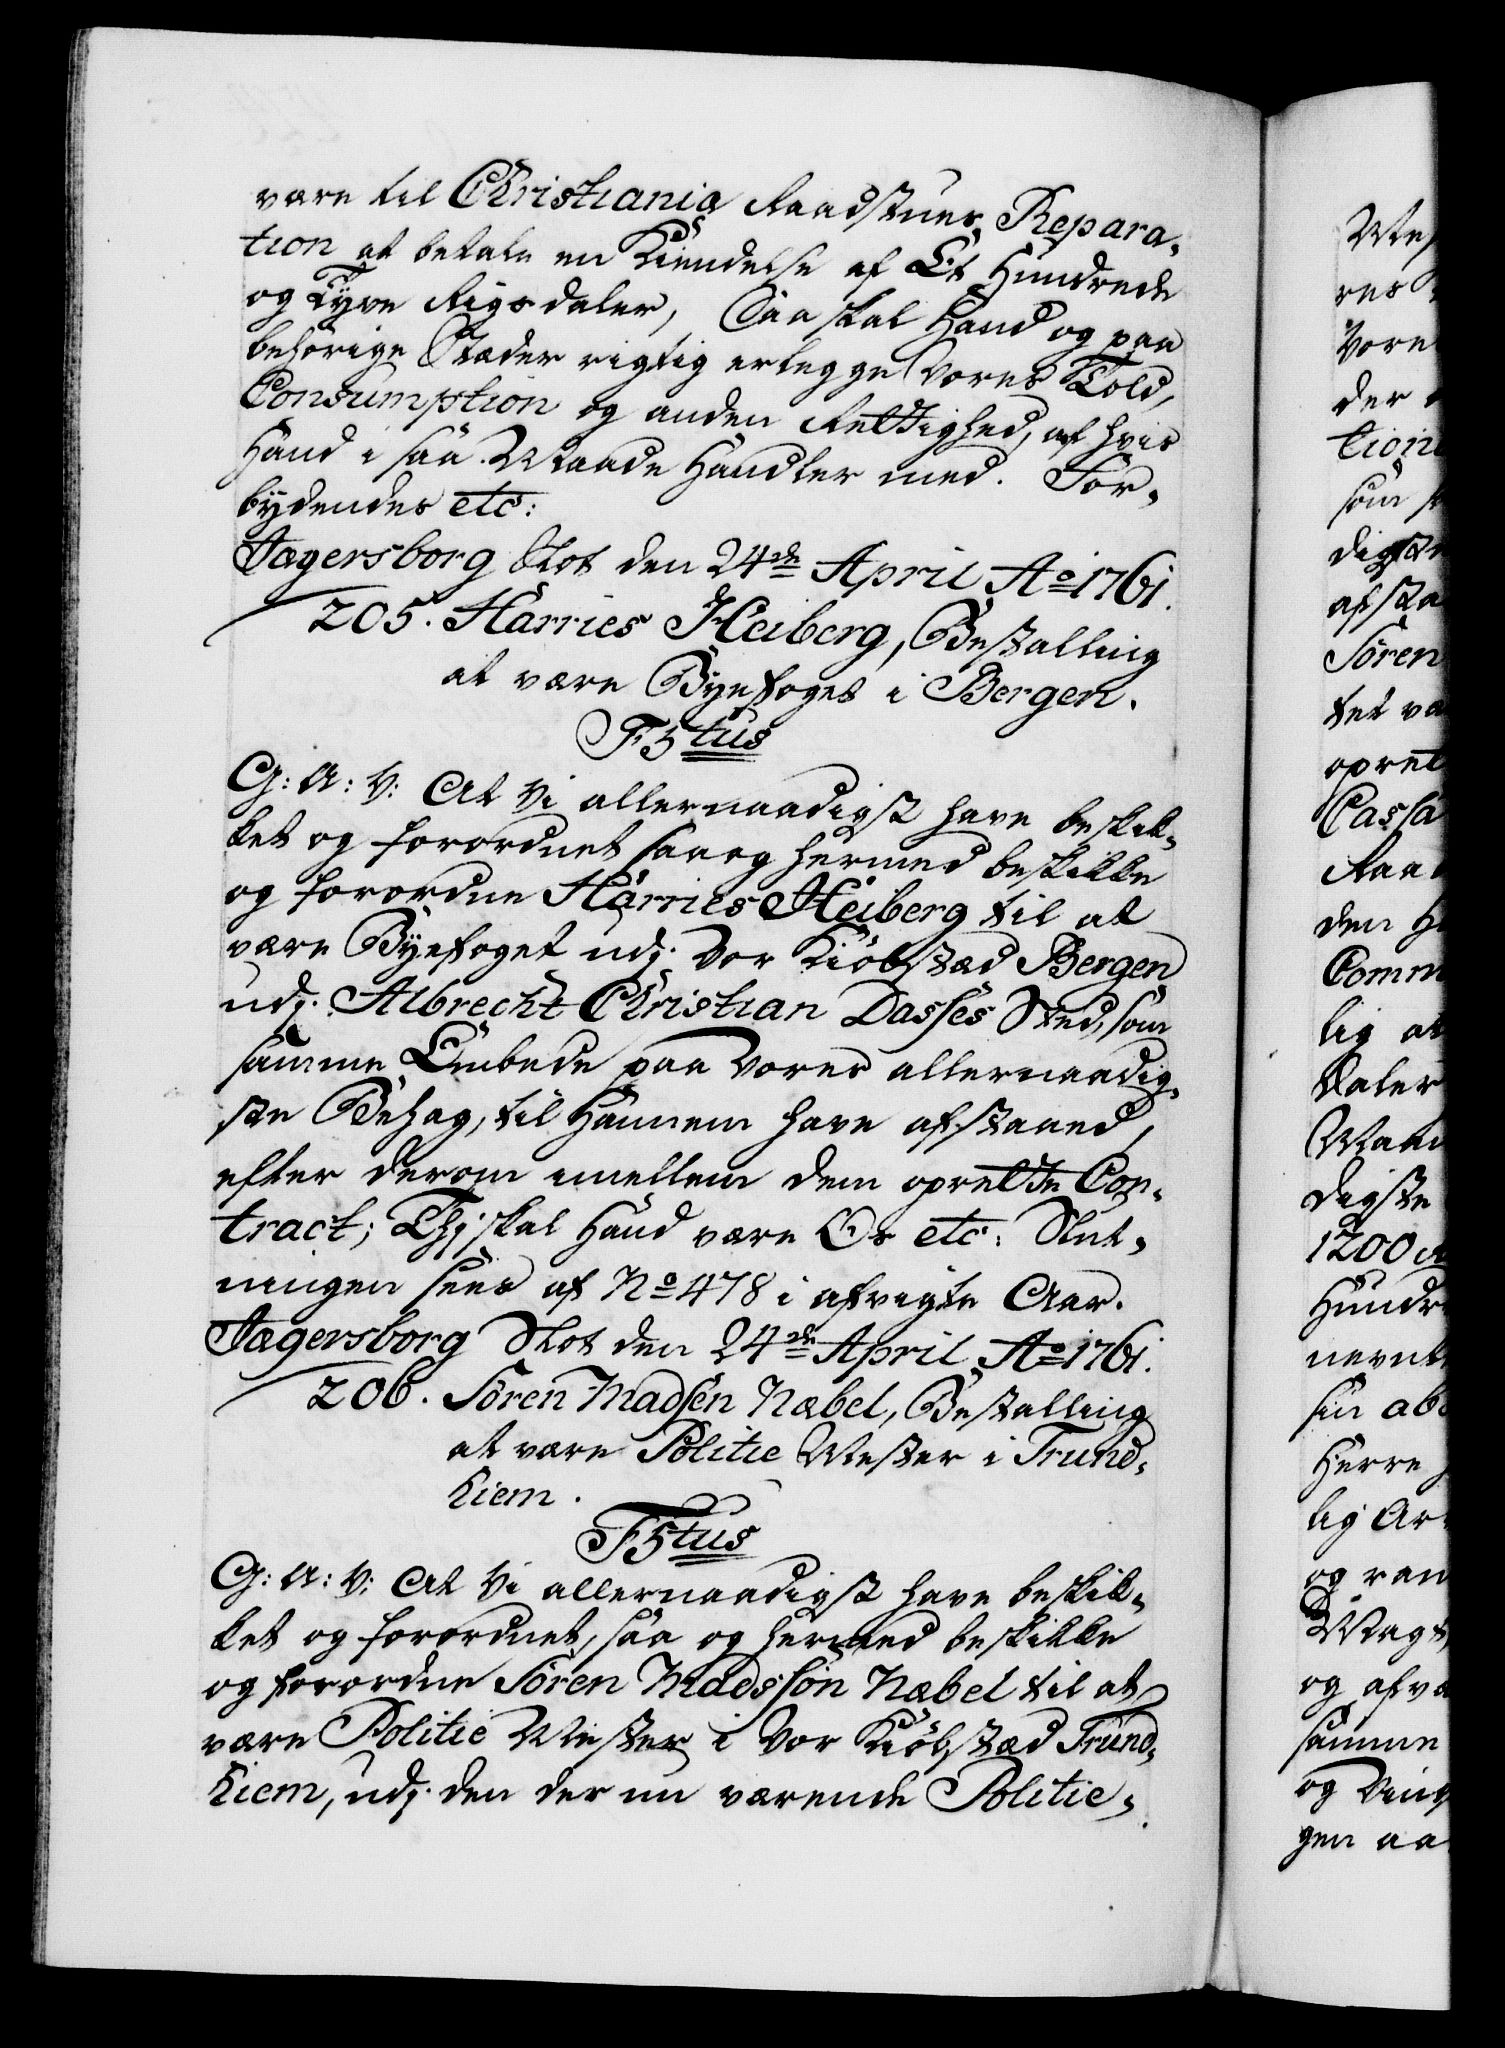 være til Christiania Raadstues Repara-
tion at betale en Kiendelse af Et Hundrede
og Tyve Rigsdaler, Saa skal Hand og paa
behørige Stæder rigtig erlegge Vores Told,
Consumption og anden Rettighed, af hvis
Hand i saa Maade Handler med. For-
bydendes etc:
Jægersborg Slot den 24de April Ao 1761.
205. Harries Heiberg, Bestalling
at være Byefoget i Bergen.
F5tus
G: A: V: At Vi allernaadigst have beskik-
ket og forordnet saa og hermed beskikke
og forordne Harries Heiberg til at
være Byefoget udj Vor Kiøbstæd Bergen
udj Albrecht Christian Dasses Sted, som
samme Embede paa Vores allernaadig-
ste Behag, til Hannem have afstaaed,
efter derom imellem dem oprettede Con-
tract; Thj skal Hand være Os etc: Slut-
ningen sees af No 478 i afvigte Aar.
Jægersborg Slot den 24de April Ao 1761.
206. Sören Madsen Næbel, Bestalling
at være Politie Mester i Trund-
hiem.
F5tus
G: A: V: At Vi allernaadigst have beskik-
ket og forordnet, saa og hermed beskikke
og forordne Sören Madssøn Næbel til at
være Politie Mester i Vor Kiøbstæd Trund-
hiem, udj den der nu værende Politie-
res
Vore
der
tion
som
digste
afsta
Sören
tet va
opret
Cassa
Raa
den
Comm
lig at
Daler
Maa
digste
1200
Hundr
nevnte
sin
Herre
lig
og ran
Magt,
og afva
samme
og
gen aa